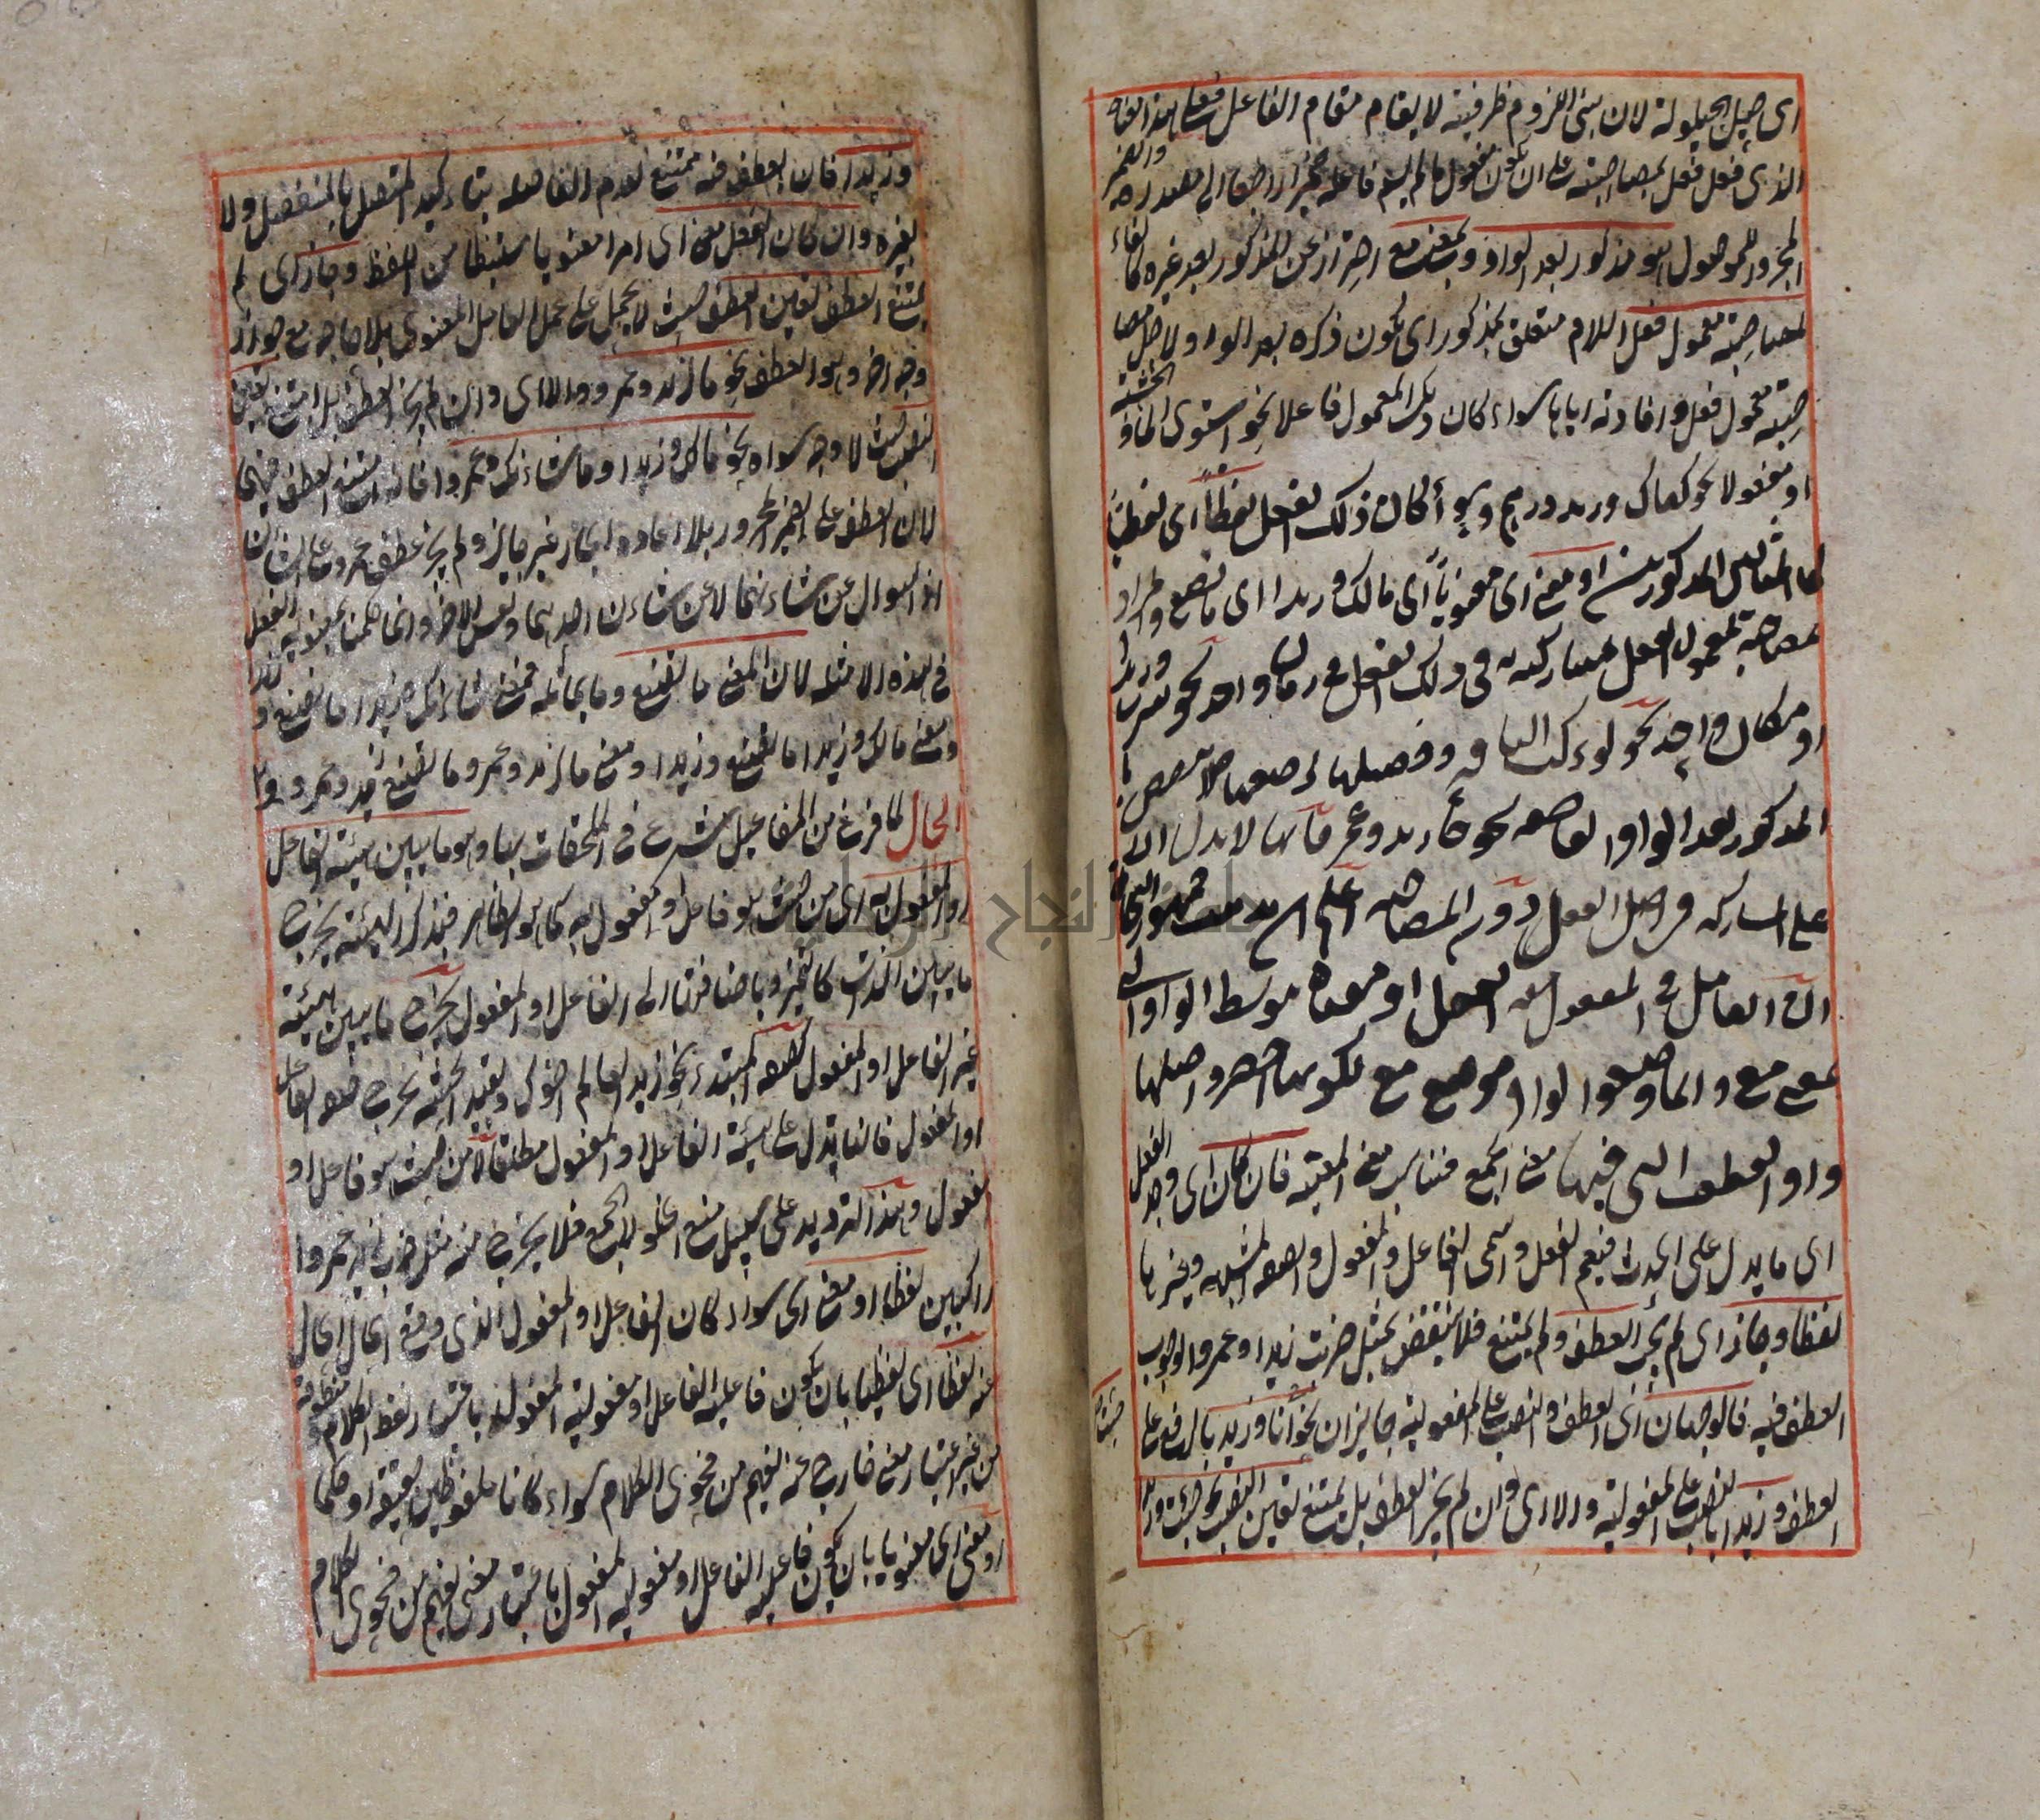 اى حيل الحيلولة لان بين اللزوم ظرفيته لا يقام مقام الفاعل فعلى هذا
الذى فعل فعل لمصاحبته على ان يكون مفعول ما لم يسم فاعله ضميرا راجعا الى مصدره والضمير
المجرور للموصول هو مذكور بعد الواو وبمعنى مع احترز عن المذكور بعد غيره كالفاء
لمصاحبته معمول فعل اللام متعلق بمذكور اى يكون ذكره بعد الواو لاجل مصا
حبته معمول فعل وافادته اياها سواء كان ذلك المعمول فاعلا نحو استوى الماء والخشبة
او مفعولا نحو كفاك وزيدا درهم وسواء كان ذلك الفعل لفظا اى لفظيا
كالمثالين المذكورين او معنى اى معنويا اى مالك وزيدا اى ما تصنع والمراد
بمصاحبة لمعمول الفعل مشاركته فى ذلك الفعل فى زمان واحد نحو سرت وزيدا
او مكان واحد نحو لو تركت الناقة وفصيلها لرضعها
المذكور بعد الواو العاطفة نحو جاء زيد وعمرو فانها لا تدل الا
على المشاركة فى اصل الفعل دون المصاحبة اعلم ان مذهب جمهور النحاة
ان العامل فى المفعول معه الفعل او معناه بتوسط الواو التى
بمعنى مع وانما وضعوا الواو موضع مع لكونها اخصر واصلها
واو العطف التى فيها معنى الجمع فناسب معنى المعية فان كان اى وجد الفعل
اى ما يدل على الحدث فيعم الفعل واسمى الفاعل والمفعول والصفة المشبهة وغيرها
لفظا وجاز اى لم يجب العطف ولم يمتنع فلا ينتقض بمثل ضربت زيدا وعمروا لوجوب
العطف فيه فالوجهان اى العطف والنصب على المفعولية جايزان نحو جئت انا وزيد بالرفع على
العطف وزيدا بالنصب على المفعولية والا اى وان لم يجز العطف بل يمتنع تعين النصب نحو جئت
وزيدا فان العطف فيه ممتنع لعدم الفاصلة بتاكيد المتصل بالمنفصل ولا
بغيره وان كان الفعل معنى اى امرا معنويا مستنبطا من اللفظ وجاز اى لم
يمتنع العطف تعين العطف حيث لا يحمل على عمل العامل المعنوى بلا حاجة مع جواز
وجه اخر وهو العطف نحو ما لزيد وعمرو والا اى وان لم يجز العطف بل امتنع تعين
النصب حيث لا وجه سواه نحو مالك وزيدا وما شانك وعمروا فانه امتنع العطف فيهما
لان العطف على الضمير المجرور بلا اعادة الجار غير جايز ولم يجز عطف عمرو على الشان
اذ السوال عن شانهما لا عن شان احدهما ونفس الاخر وانما حكمنا بمعنوية الفعل
فى هذه الامثلة لان المعنى ما تصنع وما يماثله فمعنى شانك وزيدا ما تصنع و
ومعنى مالك وزيدا ما تصنع وزيدا ومعنى ما لزيد وعمرو ما يصنع زيد وعمرو
الحال لما فرغ من المفاعيل شرع فى الملحقات بها وهو ما يبين هيئة الفاعل
او المفعول به اى من حيث هو فاعل او مفعول به كما هو الظاهر فبذكر الهيئة يخرج
ما يبين الذات كالتميز وباضافتها الى الفاعل او المفعول يخرج ما يبين هيئة
غير الفاعل او المفعول كصفة المبتدء نحو زيد العالم اخوك وبقيد الحيثية يخرج صفة الفاعل
او المفعول فانها تدل على هيئة الفاعل او المفعول مطلقا لا من حيث هو فاعل او
مفعول وهذا الترديد على سبيل منع الخلو لا الجمع فلا يخرج منه مثل ضرب زيد عمروا
راكبين لفظا او معنى اى سواء كان الفاعل او المفعول الذى وقع الحال
عنه لفظا اى لفظيا بان يكون فاعلية الفاعل او مفعولية المفعول باعتبار لفظ الكلام ومنطوقه
من غير اعتبار معنى خارج عنه يفهم من فحوى الكلام سواء كانا ملفوظين حقيقة او حكما
او معنى اى معنويا بان يكون فاعلية الفاعل او مفعولية المفعول باعتبار معنى يفهم من فحوى الكلام